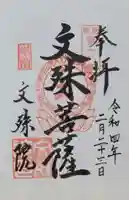 奉拝
令和四年
二月二十三日
文殊菩薩
文殊院